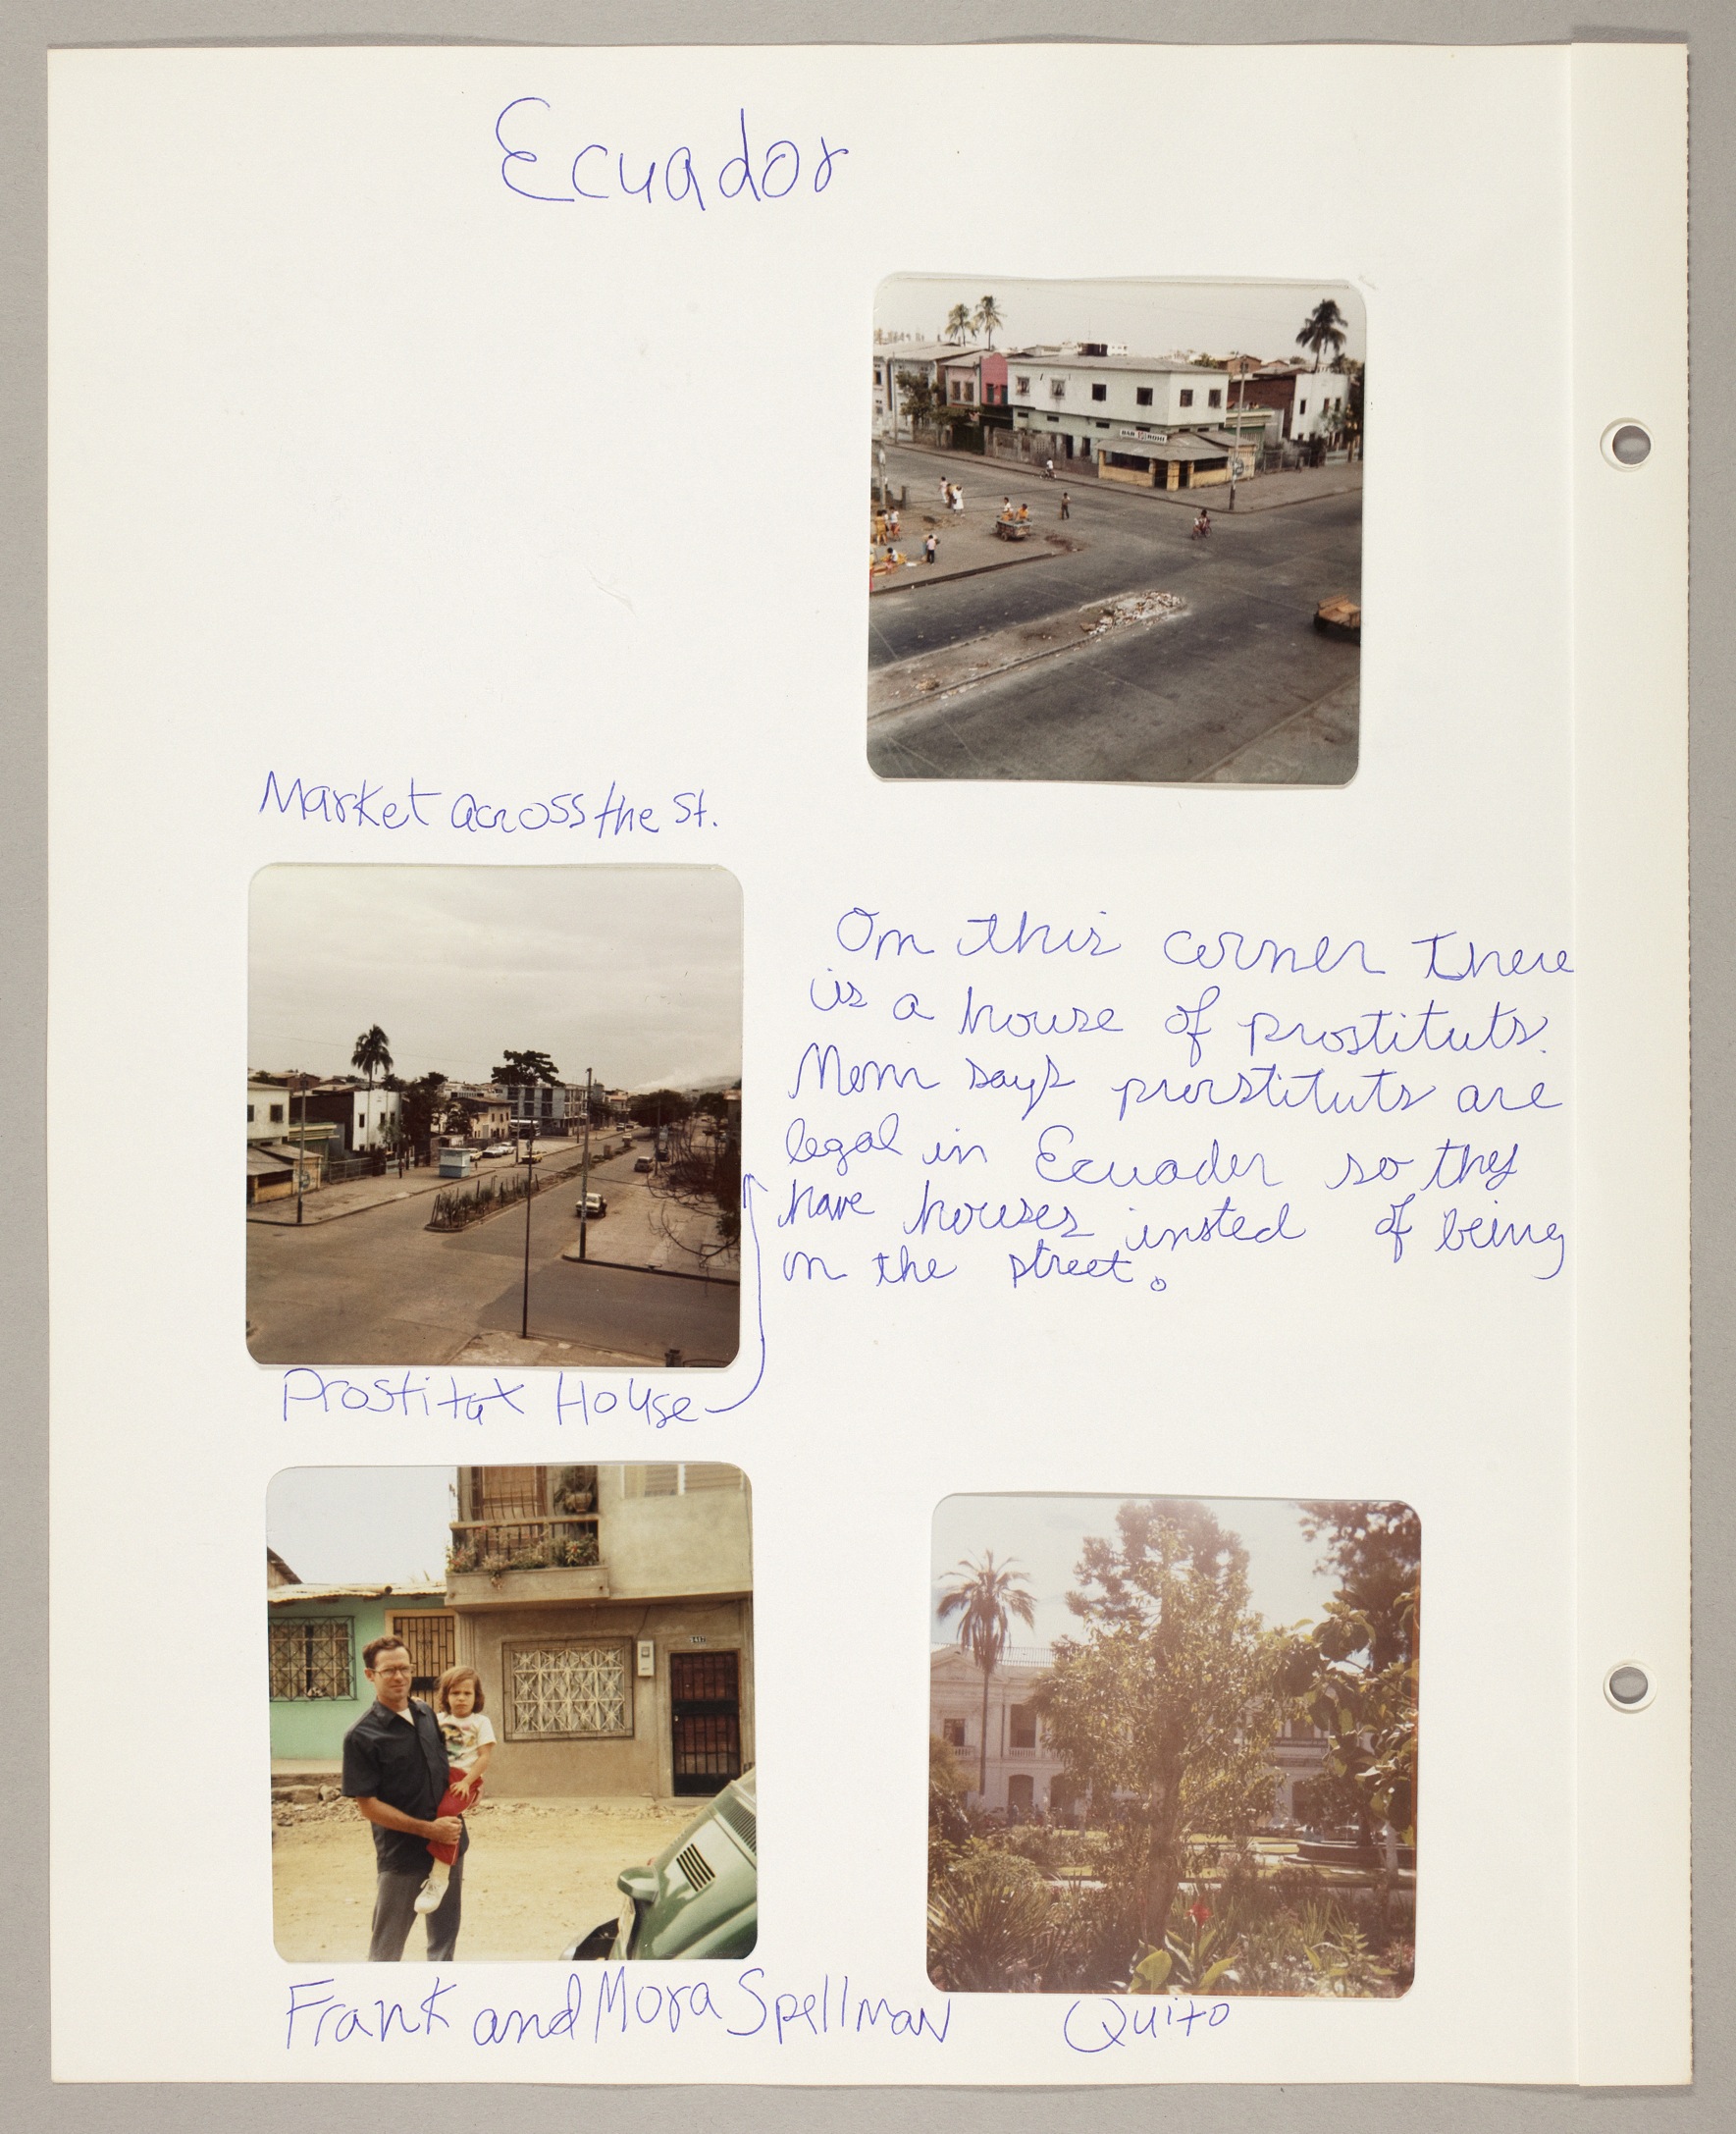 Ecuador
Market across the St.
On this corner there
is a house of prostituts.
Mom says prostituts are
legal in Ecuador so they
have houses insted of being
on the street.
Prostitut House
Frank and Mora Spellman
Quito